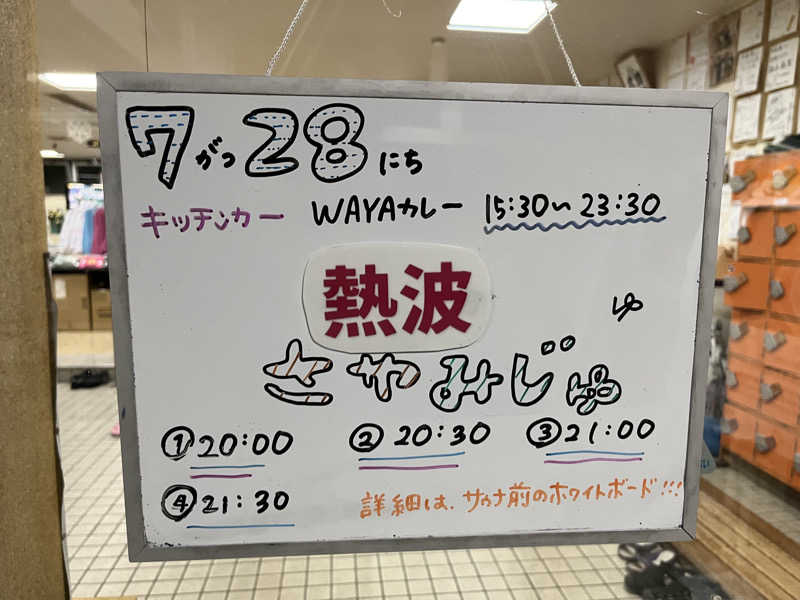 7がつ28にち
キッチンカー WAYAカレー 15:30〜23:30
熱波
ゆ
さやみじゅ
①20:00 ②20:30 ③21:00
④21:30 詳細は、サウナ前のホワイトボード!!!